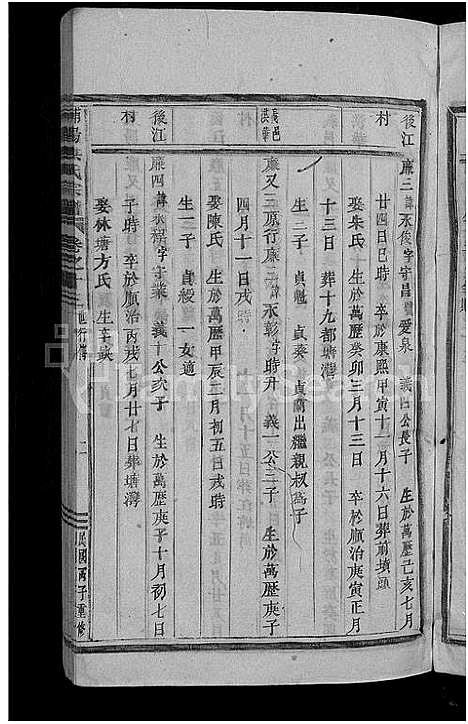 後江村 廉三 諱永俊字守昌號愛泉 義四公長子 生於萬歷己亥七月
廿四日巳時 卒於康熙甲寅十一月十六日葬前墳頭
娶朱氏 生於萬歷癸卯三月十三日 卒於順治庚寅正月
十三日 葬十九都塘灣
生二子 貞魁 貞葵 貞蘭出繼親叔為子
義邑洪華 廉又三 原行廉二 諱永彰字時升 義一公三子 生於萬歷庚子
四月十一日戌時
娶陳氏 生於萬歷甲辰二月初五日戌時
生一子 貞綬 一女適
後江村 廉四 諱永 字守業 義十公次子 生於萬歷庚子十月初七日
子時 卒於順治丙戌七月廿七日葬塘灣
娶林塘方氏 生卒缺
浦陽洪氏宗譜 卷之十三 行傳 二 民國丙子重修
FamilySearch